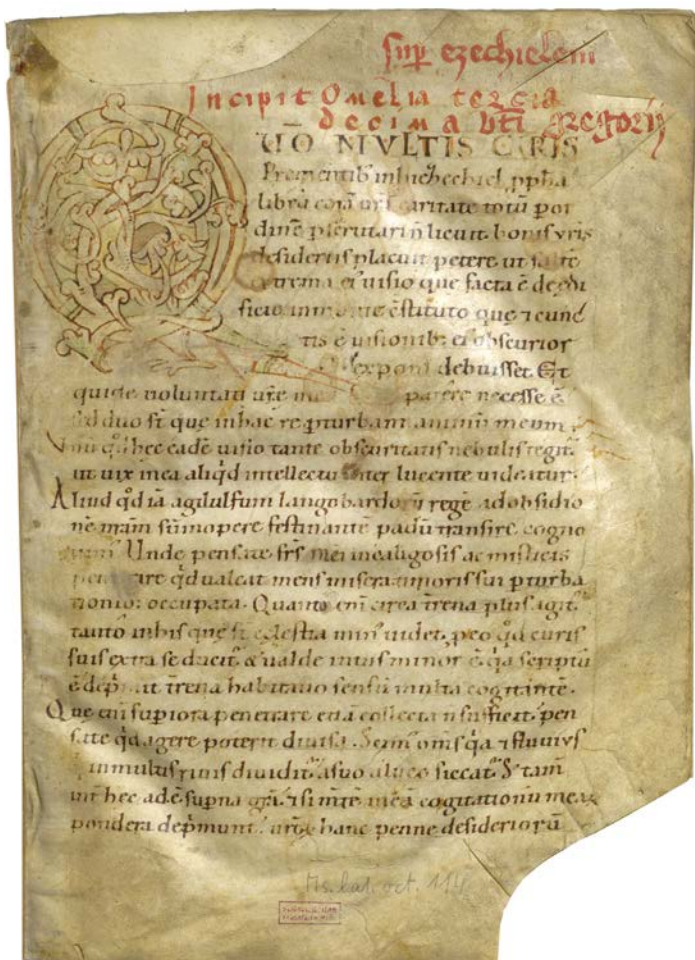 sup ezechielem
Incipit Omelia tercia
decima bti gregorii
QUO NIVLTIS CVRIS
Prementib; in hiezechiel ppha
librū corā urā caritate totū por
dinē pscrutari n̄ licuit. bonis uris
desideriis placuit petere. ut saltē
extrema ei uisio que facta ē de edi
ficio in monte cstituto que ⁊ cunc
tis ē uisionib; ei obscurior
exponi debuisset. Et
quidē uoluntati ure me parere necesse ē
sed duo st̄ que in hac re pturbant animū meum
qd hec eadē uisio tante obscuritatis nebulis tegit̄.
ut uix in ea aliqd intellectu lucente uideatur.
Aliud qd iā agilulfum langobardorū regē ad obsidio
nē nrām sūmopere festinantē padū transire cogno
uim. Unde pensate frs mei in caligosis ac misticis
penetrare qd ualeat mens misera timoris sui pturba
tionib; occupata. Quanto eni circa trena plus agit̄
tanto in his que st̄ celestia min uidet. peo qd curis
suis extra se ducit̄. & ualde intus minor ē. qa scriptū
ē depmit trena habitatio sensū multa cogitantē.
Que eni supiora penetrare etiā collecta n̄ sufficit. pen
sate qd agere poterit diuisa. Scim oms qa ⁊ fluuius
q in multis riuis diuidit̄. a suo alueo siccat̄. S; tam
int hec adē supna gra. ⁊ si mtē meā cogitationū mearū
pondera depmunt. hanc penne desideriorū
Ms. lat. oct. 114